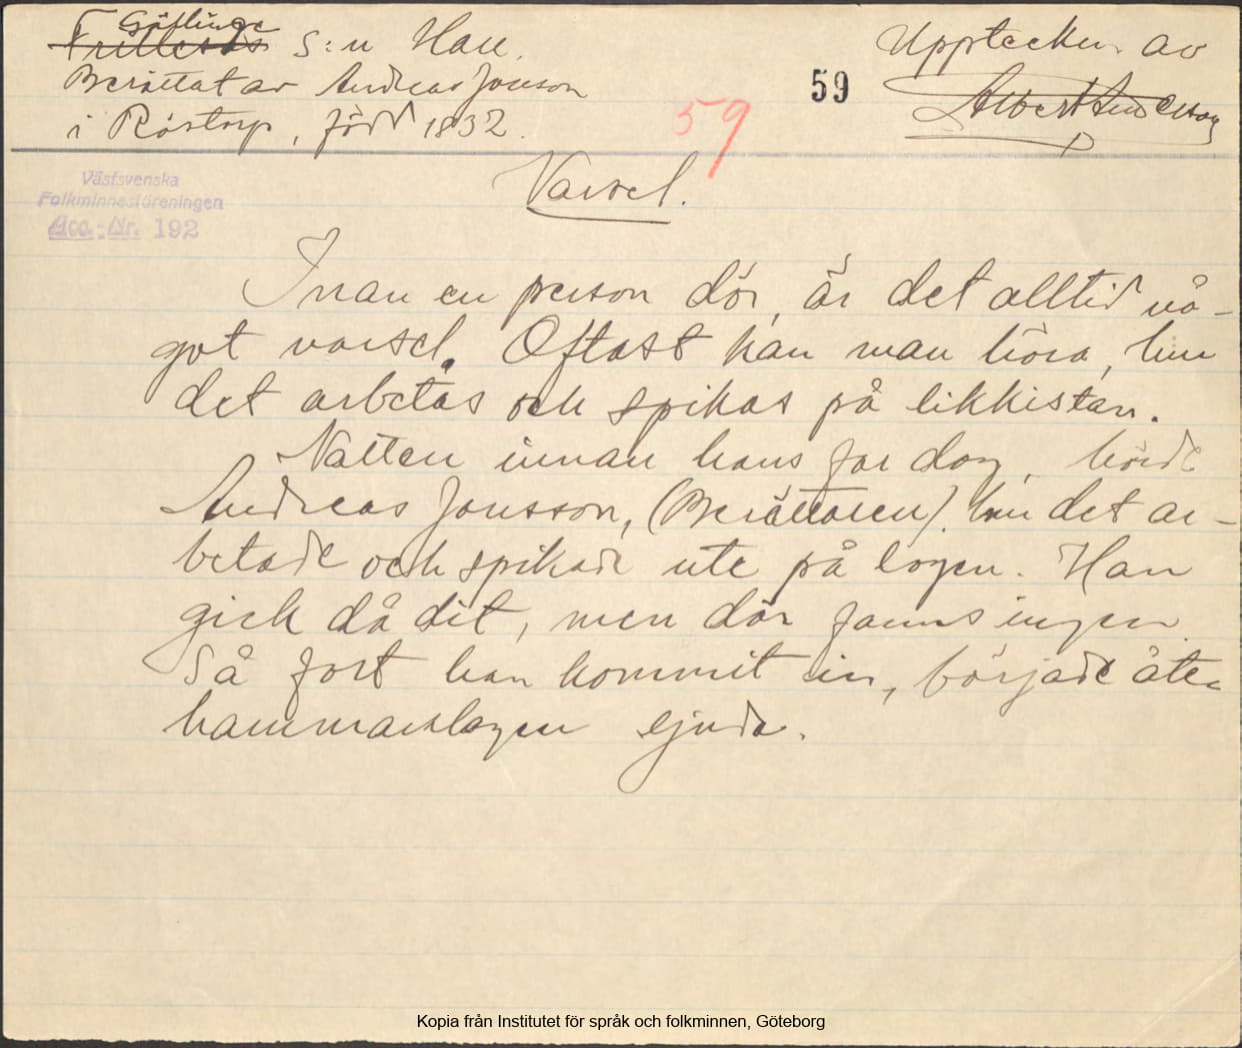 Gällinge
Frillesås s:n Hall.
Berättat av Andreas Jonson
i Röstorp, född 1832.
Upptecknn. av
Albert Andersson
59
59
Västsvenska
Folkminnesföreningen
Acc.-Nr. 192
Varsel.
Innan en person dör, är det alltid nå-
got varsel. Oftast kan man höra, hur
det arbetas och spikas på likkistan.
Natten innan hans far dog, hörde
Andreas Jonsson, (Berättaren), hur det ar-
betade och spikade ute på logen. Han
gick då dit, men där fanns ingen.
Så fort han kommit in, började åter
hammarslagen ljuda.
Kopia från Institutet för språk och folkminnen, Göteborg